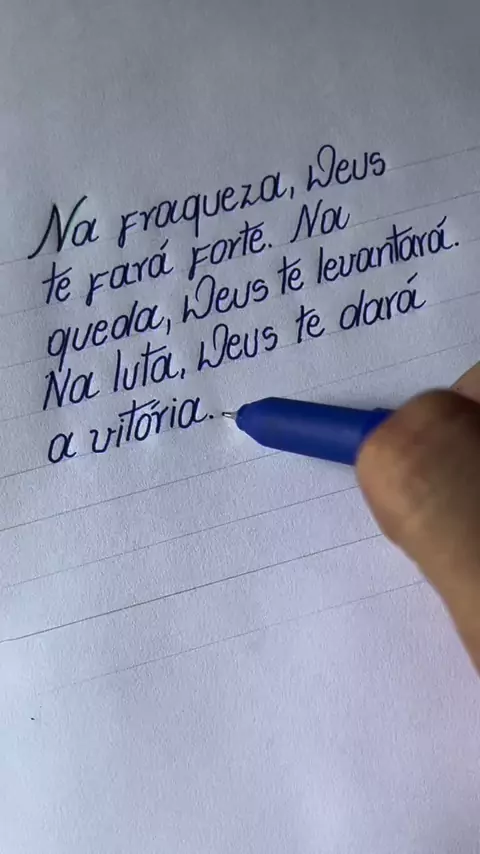 Na fraqueza, Deus
te fará forte. Na
queda, Deus te levantará.
Na luta, Deus te dará
a vitória.